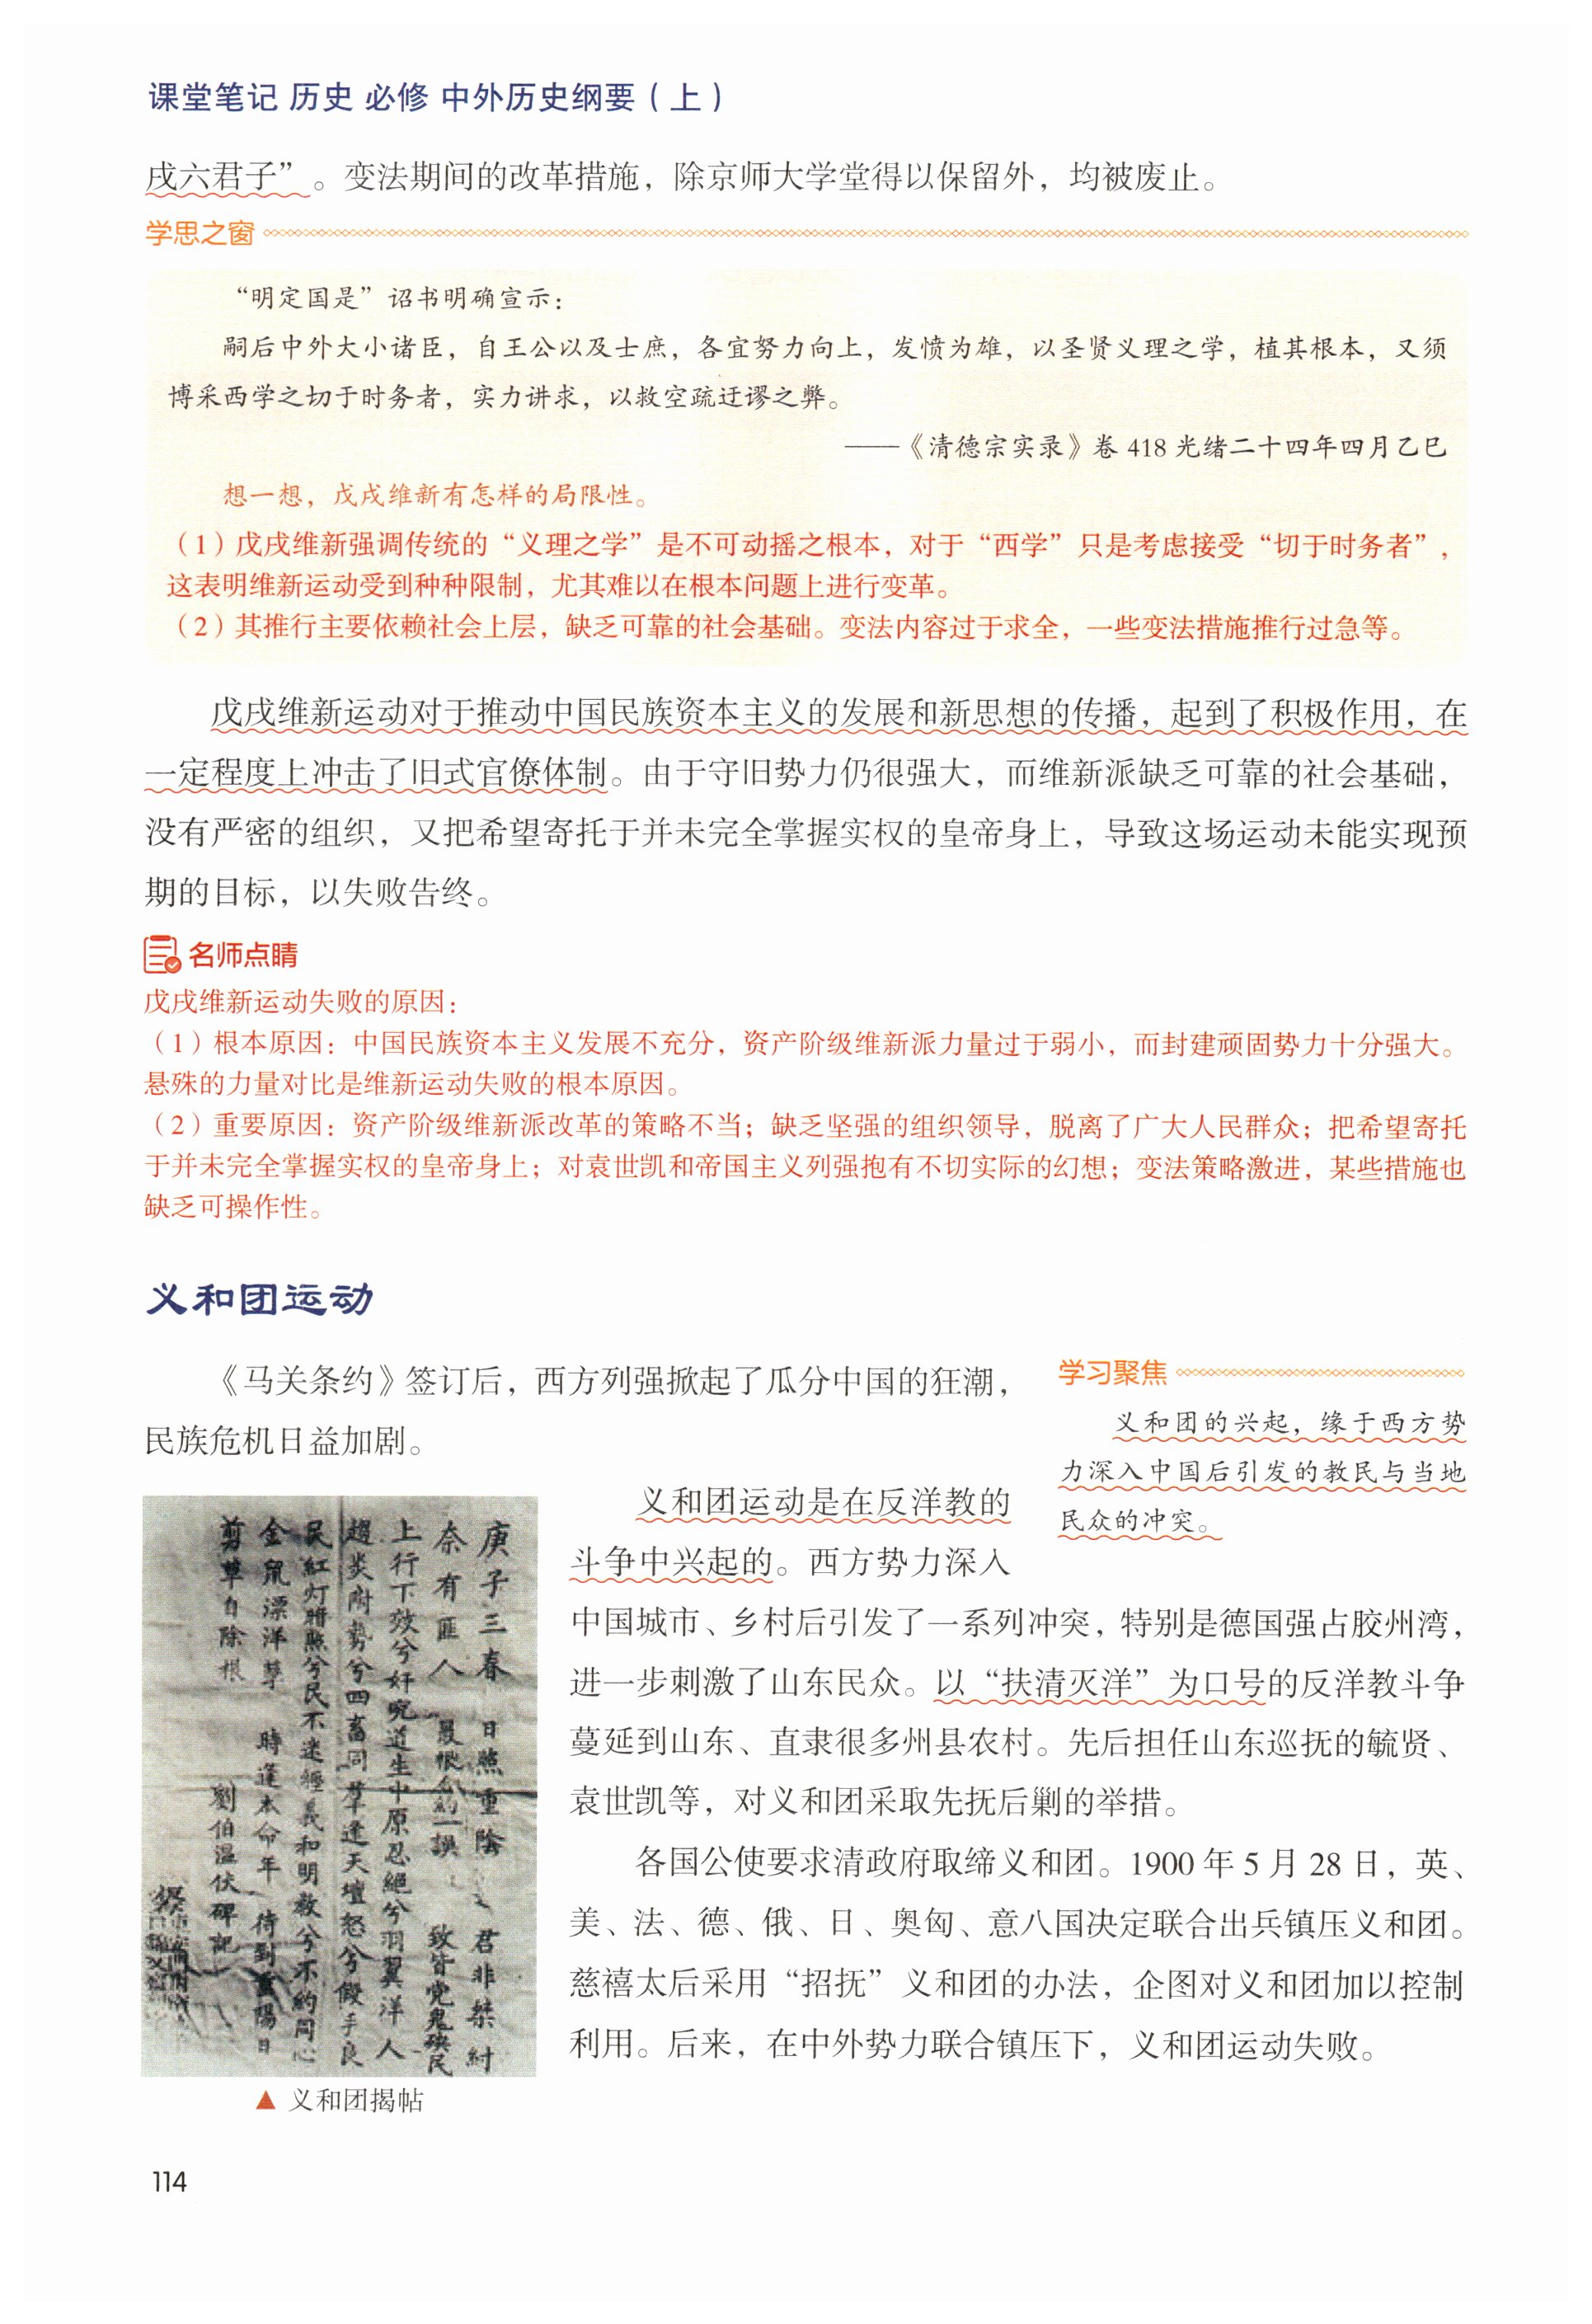 课堂笔记 历史 必修 中外历史纲要（上）
戌六君子”。变法期间的改革措施，除京师大学堂得以保留外，均被废止。
学思之窗
“明定国是”诏书明确宣示：
嗣后中外大小诸臣，自王公以及士庶，各宜努力向上，发愤为雄，以圣贤义理之学，植其根本，又须
博采西学之切于时务者，实力讲求，以救空疏迂谬之弊。
——《清德宗实录》卷 418 光绪二十四年四月乙巳
想一想，戊戌维新有怎样的局限性。
（1）戊戌维新强调传统的“义理之学”是不可动摇之根本，对于“西学”只是考虑接受“切于时务者”，
这表明维新运动受到种种限制，尤其难以在根本问题上进行变革。
（2）其推行主要依赖社会上层，缺乏可靠的社会基础。变法内容过于求全，一些变法措施推行过急等。
戊戌维新运动对于推动中国民族资本主义的发展和新思想的传播，起到了积极作用，在
一定程度上冲击了旧式官僚体制。由于守旧势力仍很强大，而维新派缺乏可靠的社会基础，
没有严密的组织，又把希望寄托于并未完全掌握实权的皇帝身上，导致这场运动未能实现预
期的目标，以失败告终。
名师点睛
戊戌维新运动失败的原因：
（1）根本原因：中国民族资本主义发展不充分，资产阶级维新派力量过于弱小，而封建顽固势力十分强大。
悬殊的力量对比是维新运动失败的根本原因。
（2）重要原因：资产阶级维新派改革的策略不当；缺乏坚强的组织领导，脱离了广大人民群众；把希望寄托
于并未完全掌握实权的皇帝身上；对袁世凯和帝国主义列强抱有不切实际的幻想；变法策略激进，某些措施也
缺乏可操作性。
义和团运动
《马关条约》签订后，西方列强掀起了瓜分中国的狂潮，
民族危机日益加剧。
学习聚焦
义和团的兴起，缘于西方势
力深入中国后引发的教民与当地
民众的冲突。
义和团运动是在反洋教的
斗争中兴起的。西方势力深入
中国城市、乡村后引发了一系列冲突，特别是德国强占胶州湾，
进一步刺激了山东民众。以“扶清灭洋”为口号的反洋教斗争
蔓延到山东、直隶很多州县农村。先后担任山东巡抚的毓贤、
袁世凯等，对义和团采取先抚后剿的举措。
各国公使要求清政府取缔义和团。1900 年 5 月 28 日，英、
美、法、德、俄、日、奥匈、意八国决定联合出兵镇压义和团。
慈禧太后采用“招抚”义和团的办法，企图对义和团加以控制
利用。后来，在中外势力联合镇压下，义和团运动失败。
庚子三春 日照重陰 君非桀紂
奈有匪人 致皆党鬼殃民
上行下效兮奸宄道生中原忍絕兮羽翼洋人
趨炎附勢兮四畜同群逢天壇怒兮假手良
民紅灯暗照兮民不迷經義和明教兮不約同心
金鼠漂洋孽 時逢本命年 待到重陽日
剪草自除根 劉伯温伏碑記
▲ 义和团揭帖
114